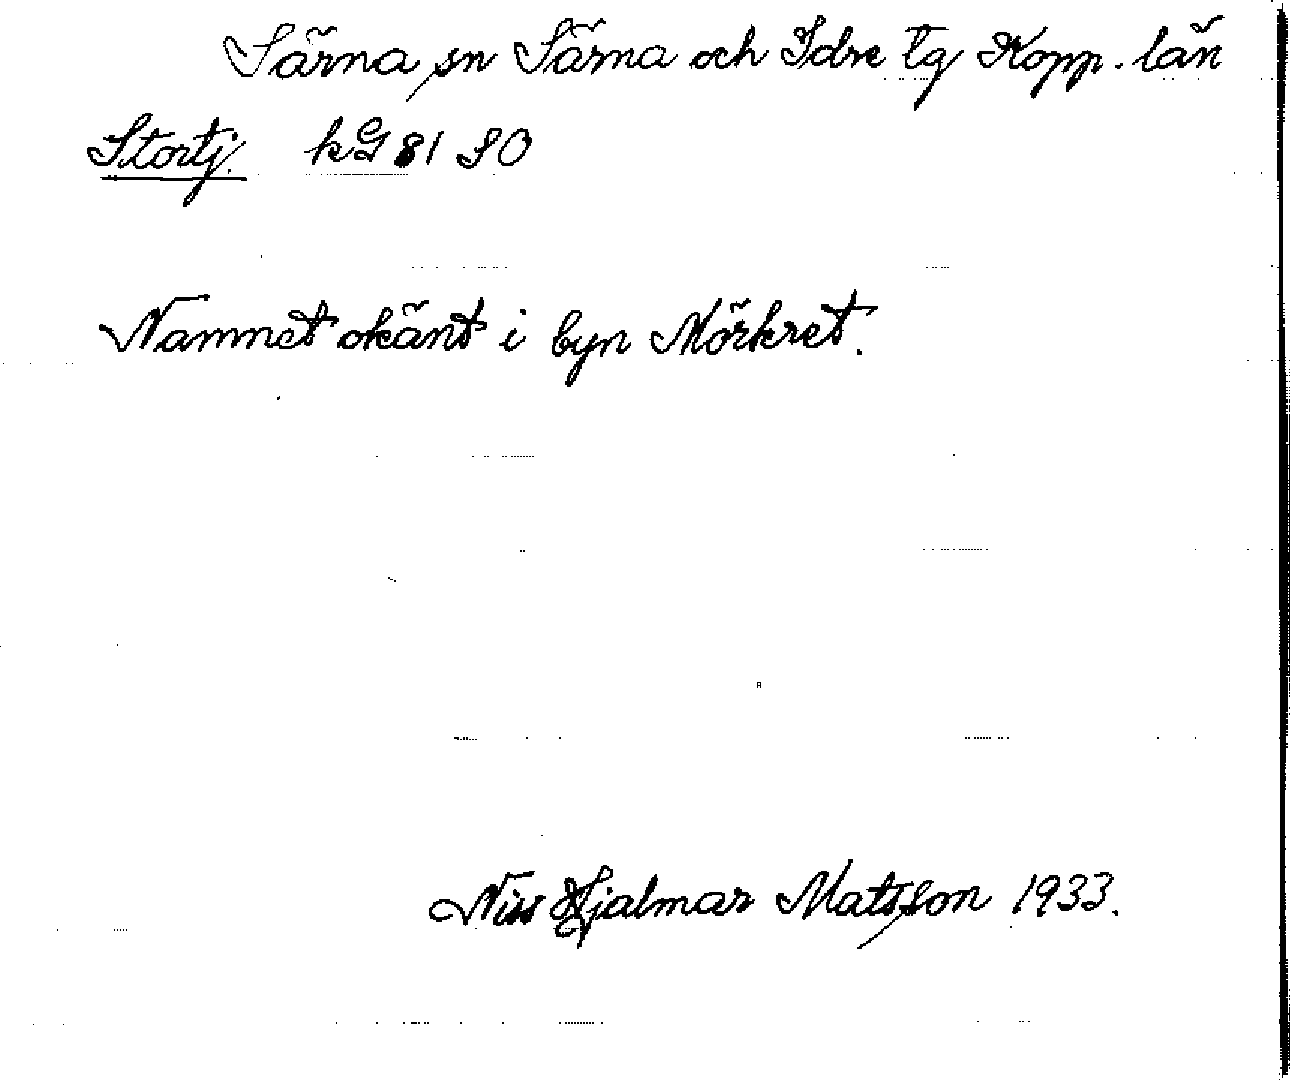 Särna sn Särna och Idre tg Kopp. län
Stortj. kG 81 SO
Namnet okänt i byn Mörkret.
Niss Hjalmar Matsson 1933.